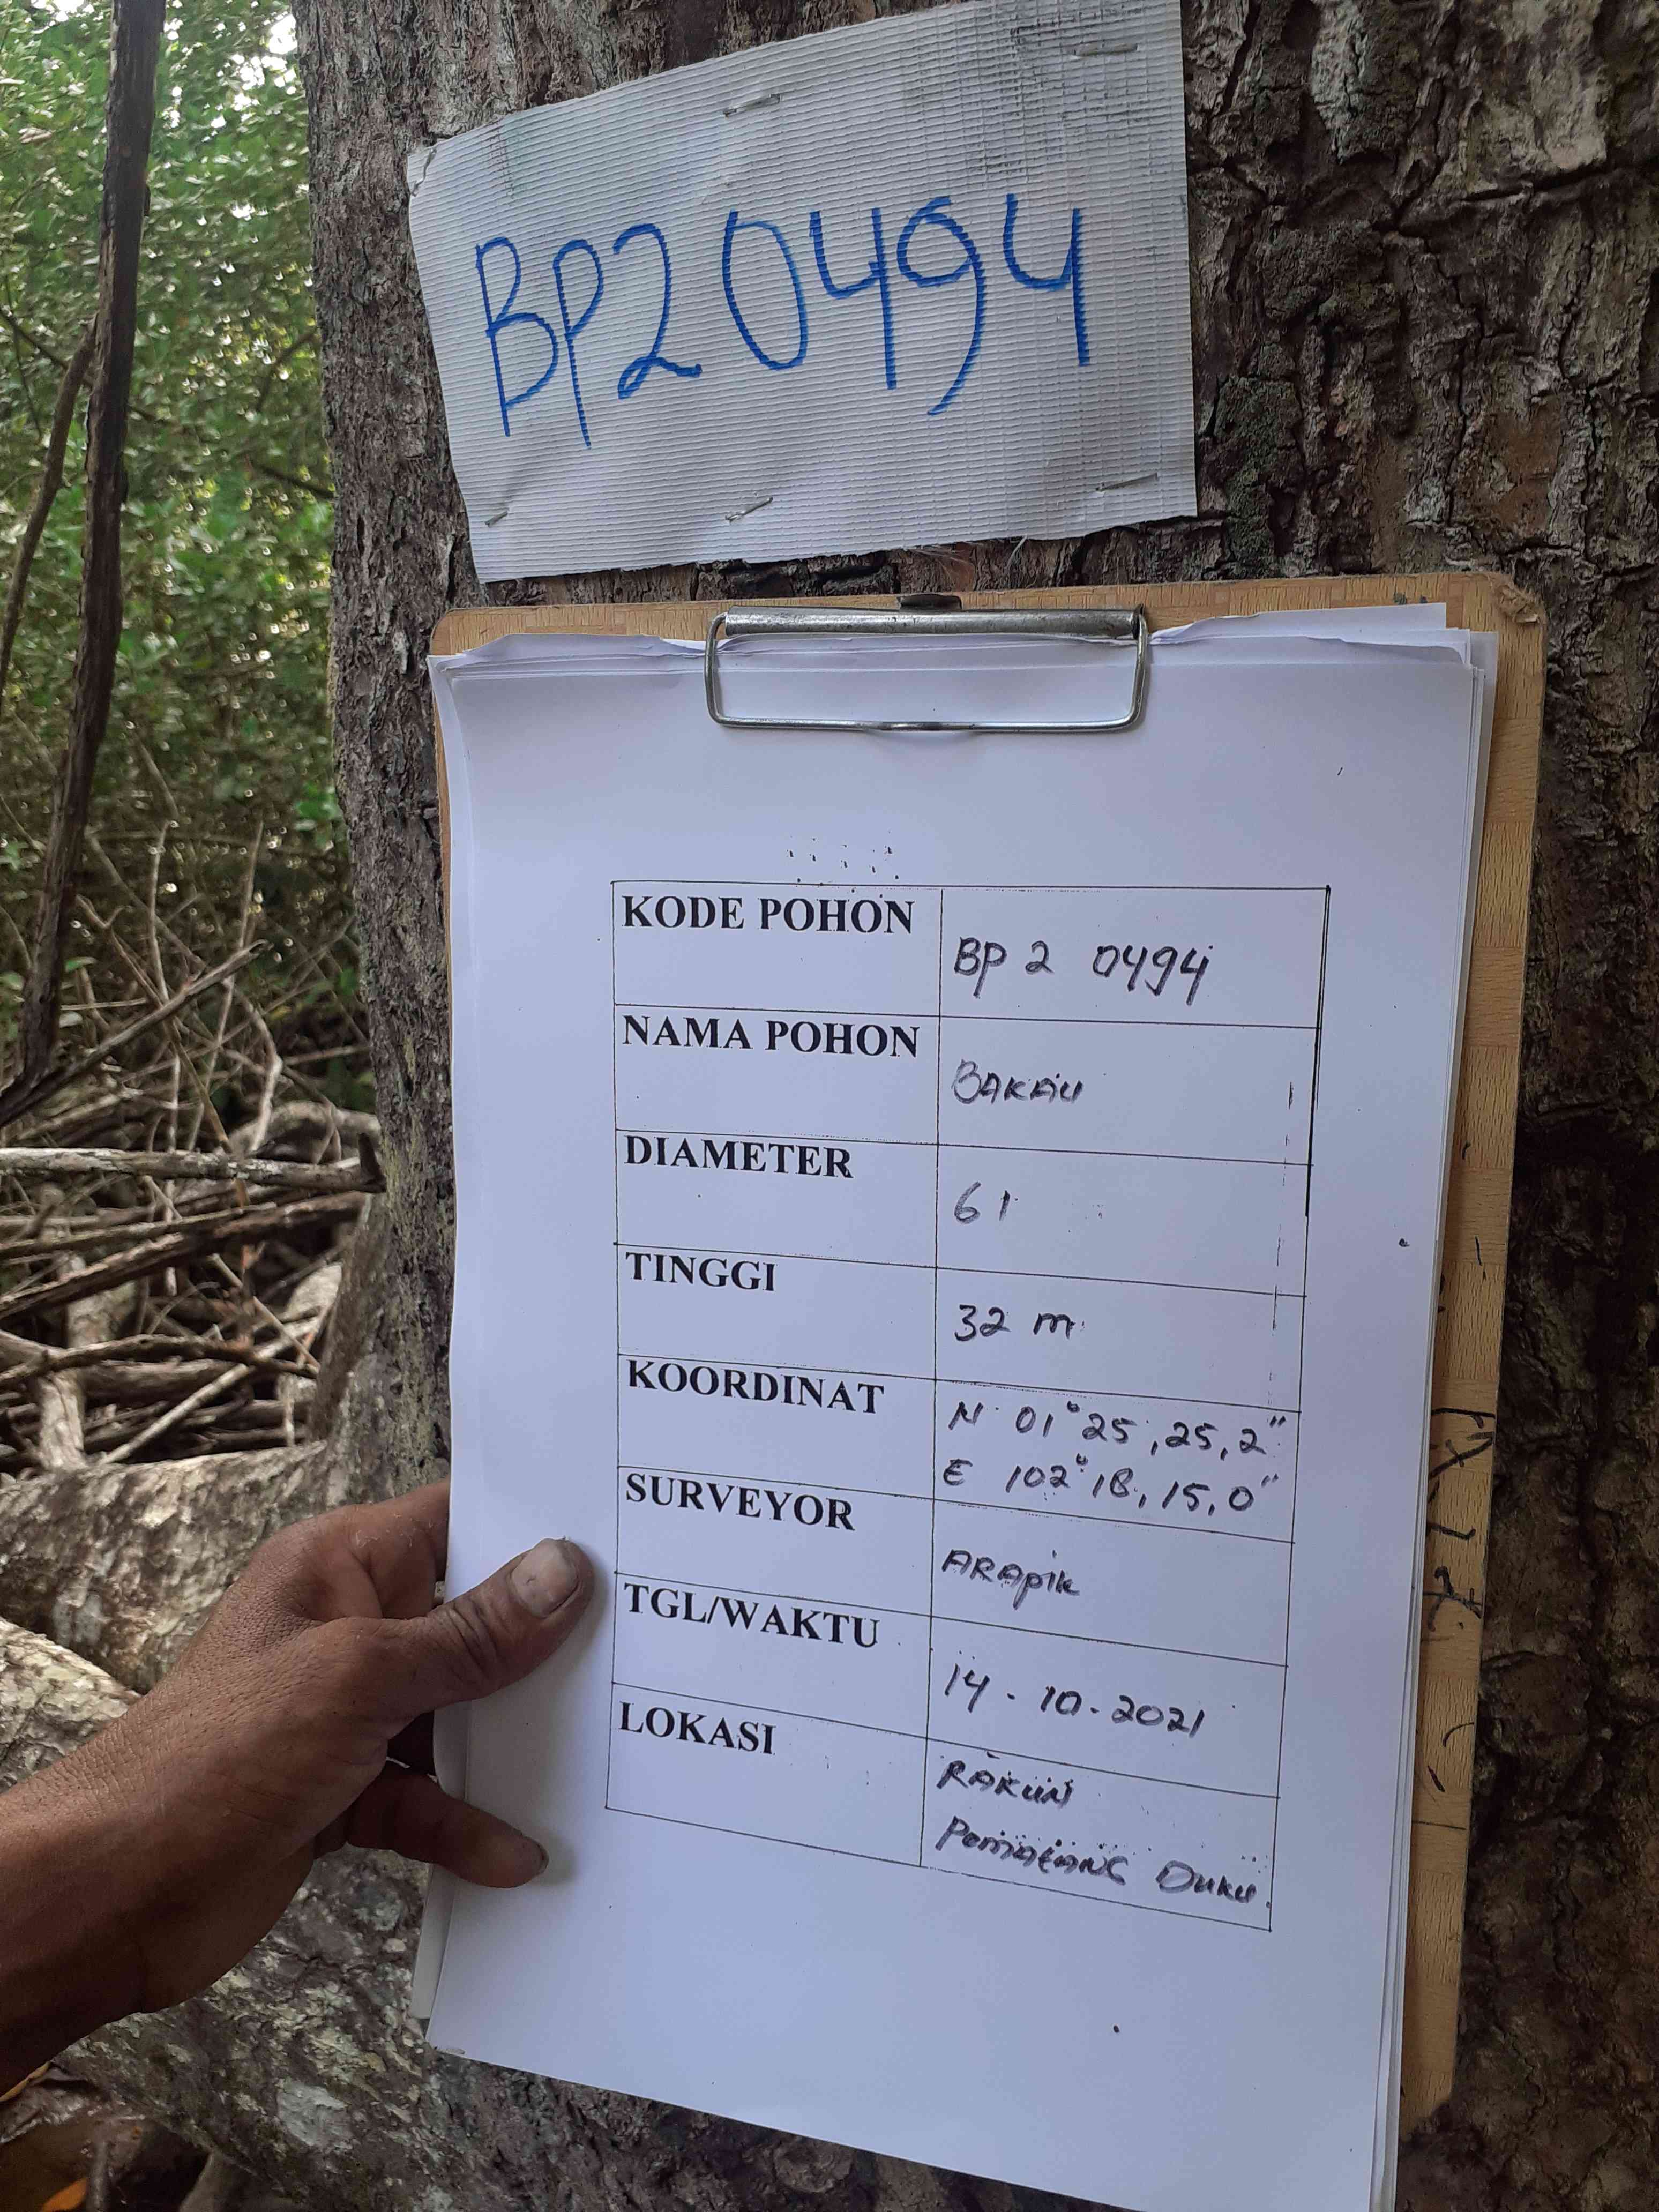 BP20494
KODE POHON
BP 2 0494
NAMA POHON
BAKAU
DIAMETER
61
TINGGI
32 m
KOORDINAT
N 01° 25, 25, 2"
E 102° 18, 15, 0"
SURVEYOR
ARAPIK
TGL/WAKTU
14 - 10 - 2021
LOKASI
RAKUN
PemAtANG Duku